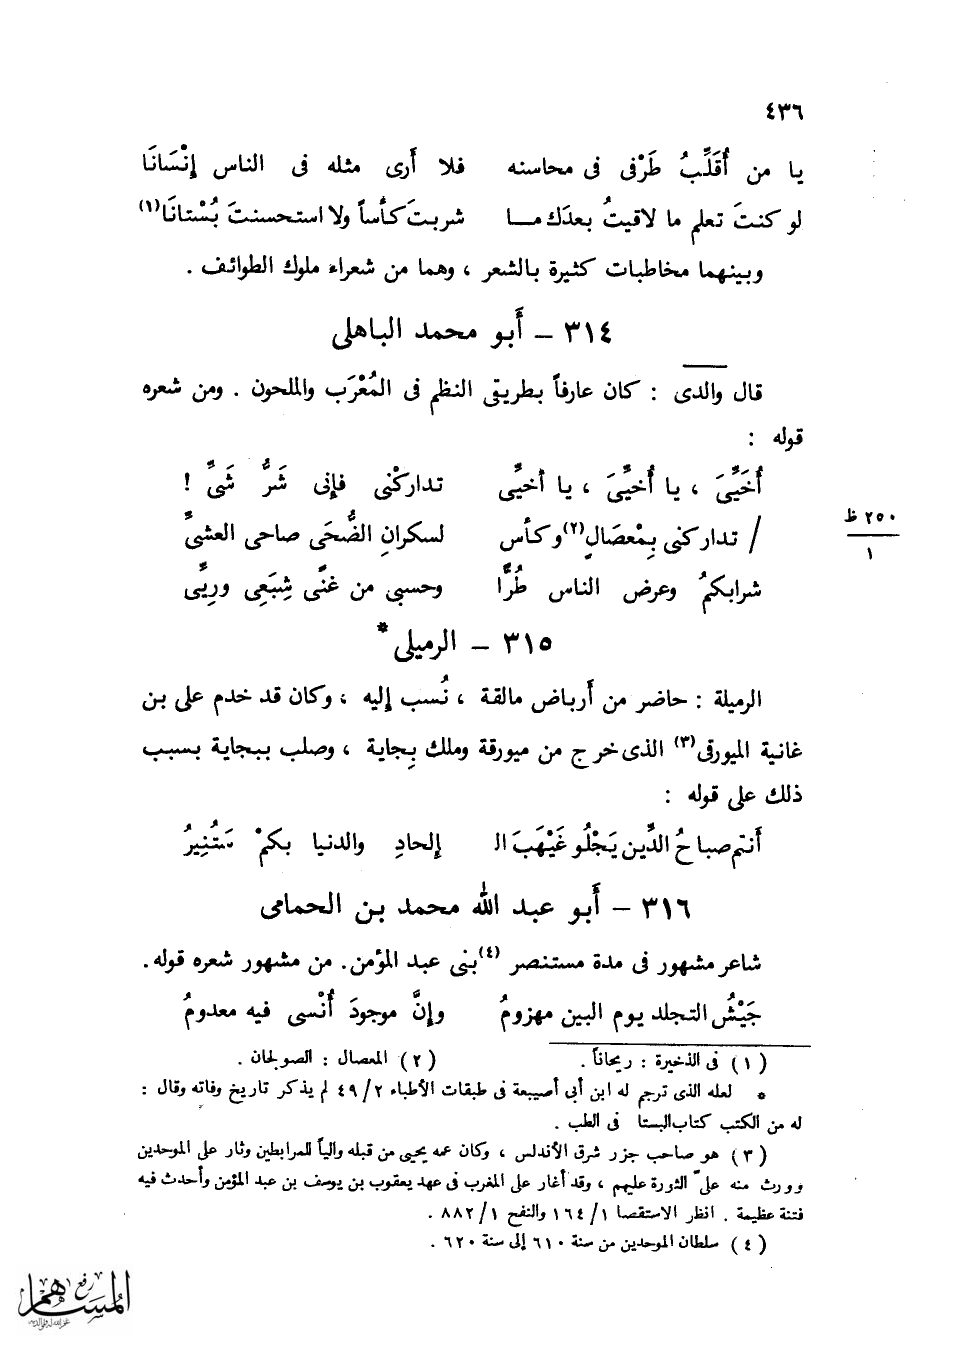 ٤٣٦
يا من أُقَلِّبُ طَرْفى فى محاسنه فلا أَرى مثله فى الناس إِنْسَانَا
لو كنتَ تعلم ما لاقيتُ بعدَك مـا شربتَ كأساً ولا استحسنتَ بُسْتانَا(١)
وبينهما مخاطبات كثيرة بالشعر ، وهما من شعراء ملوك الطوائف .
٣١٤ – أَبو محمد الباهلى
قال والدى : كان عارفاً بطريقى النظم فى المُعْرَب والملحون . ومن شعره
قوله :
أُخَىَّ ، يا أُخيَّىَ ، يا أخيَّى تداركْنى فإنى شَرُّ شَىِّ !
/ تداركنى بِمْعصَالٍ(٢) وكأس لسكرانِ الضُّحَى صاحى العشىِّ
٢٥٠ ظ
١
شرابكمُ وعرض الناس طُرًّا وحسبى من غنًى شِبَعِى وريِّى
٣١٥ – الرميلى *
الرميلة : حاضر من أَرباض مالقة ، نُسب إليه ، وكان قد خدم على بن
غانية الميورقى(٣) الذى خرج من ميورقة وملك بِجاية ، وصلب ببجاية بسبب
ذلك على قوله :
أَنتم صباحُ الدِّين يَجْلُو غَيْهَبَ الـ إلحادِ والدنيا بكمْ تستُنِيرُ
٣١٦ – أَبو عبد الله محمد بن الحمامى
شاعر مشهور فى مدة مستنصر (٤) بنى عبد المؤمن. من مشهور شعره قوله.
جَيْشُ التجلد يوم البين مهزومُ وإِنَّ موجودَ أُنْسى فيه معدومُ
(١) فى الذخيرة : ريحاناً . (٢) المعصال : الصولجان .
* لعله الذى ترجم له ابن أبى أصيبعة فى طبقات الأطباء ٤٩/٢ لم يذكر تاريخ وفاته وقال :
له من الكتب كتاب البستا فى الطب .
(٣) هو صاحب جزر شرق الأندلس ، وكان عمه يحيى من قبله والياً للمرابطين وثار على الموحدين
وورث منه علىّ الثورة عليهم ، وقد أغار على المغرب فى عهد يعقوب بن يوسف بن عبد المؤمن وأحدث فيه
فتنة عظيمة . انظر الاستقصا ١٦٤/١ والنفح ٨٨٢/١ .
(٤) سلطان الموحدين من سنة ٦١٠ إلى سنة ٦٢٠ .
رفع
المساهم